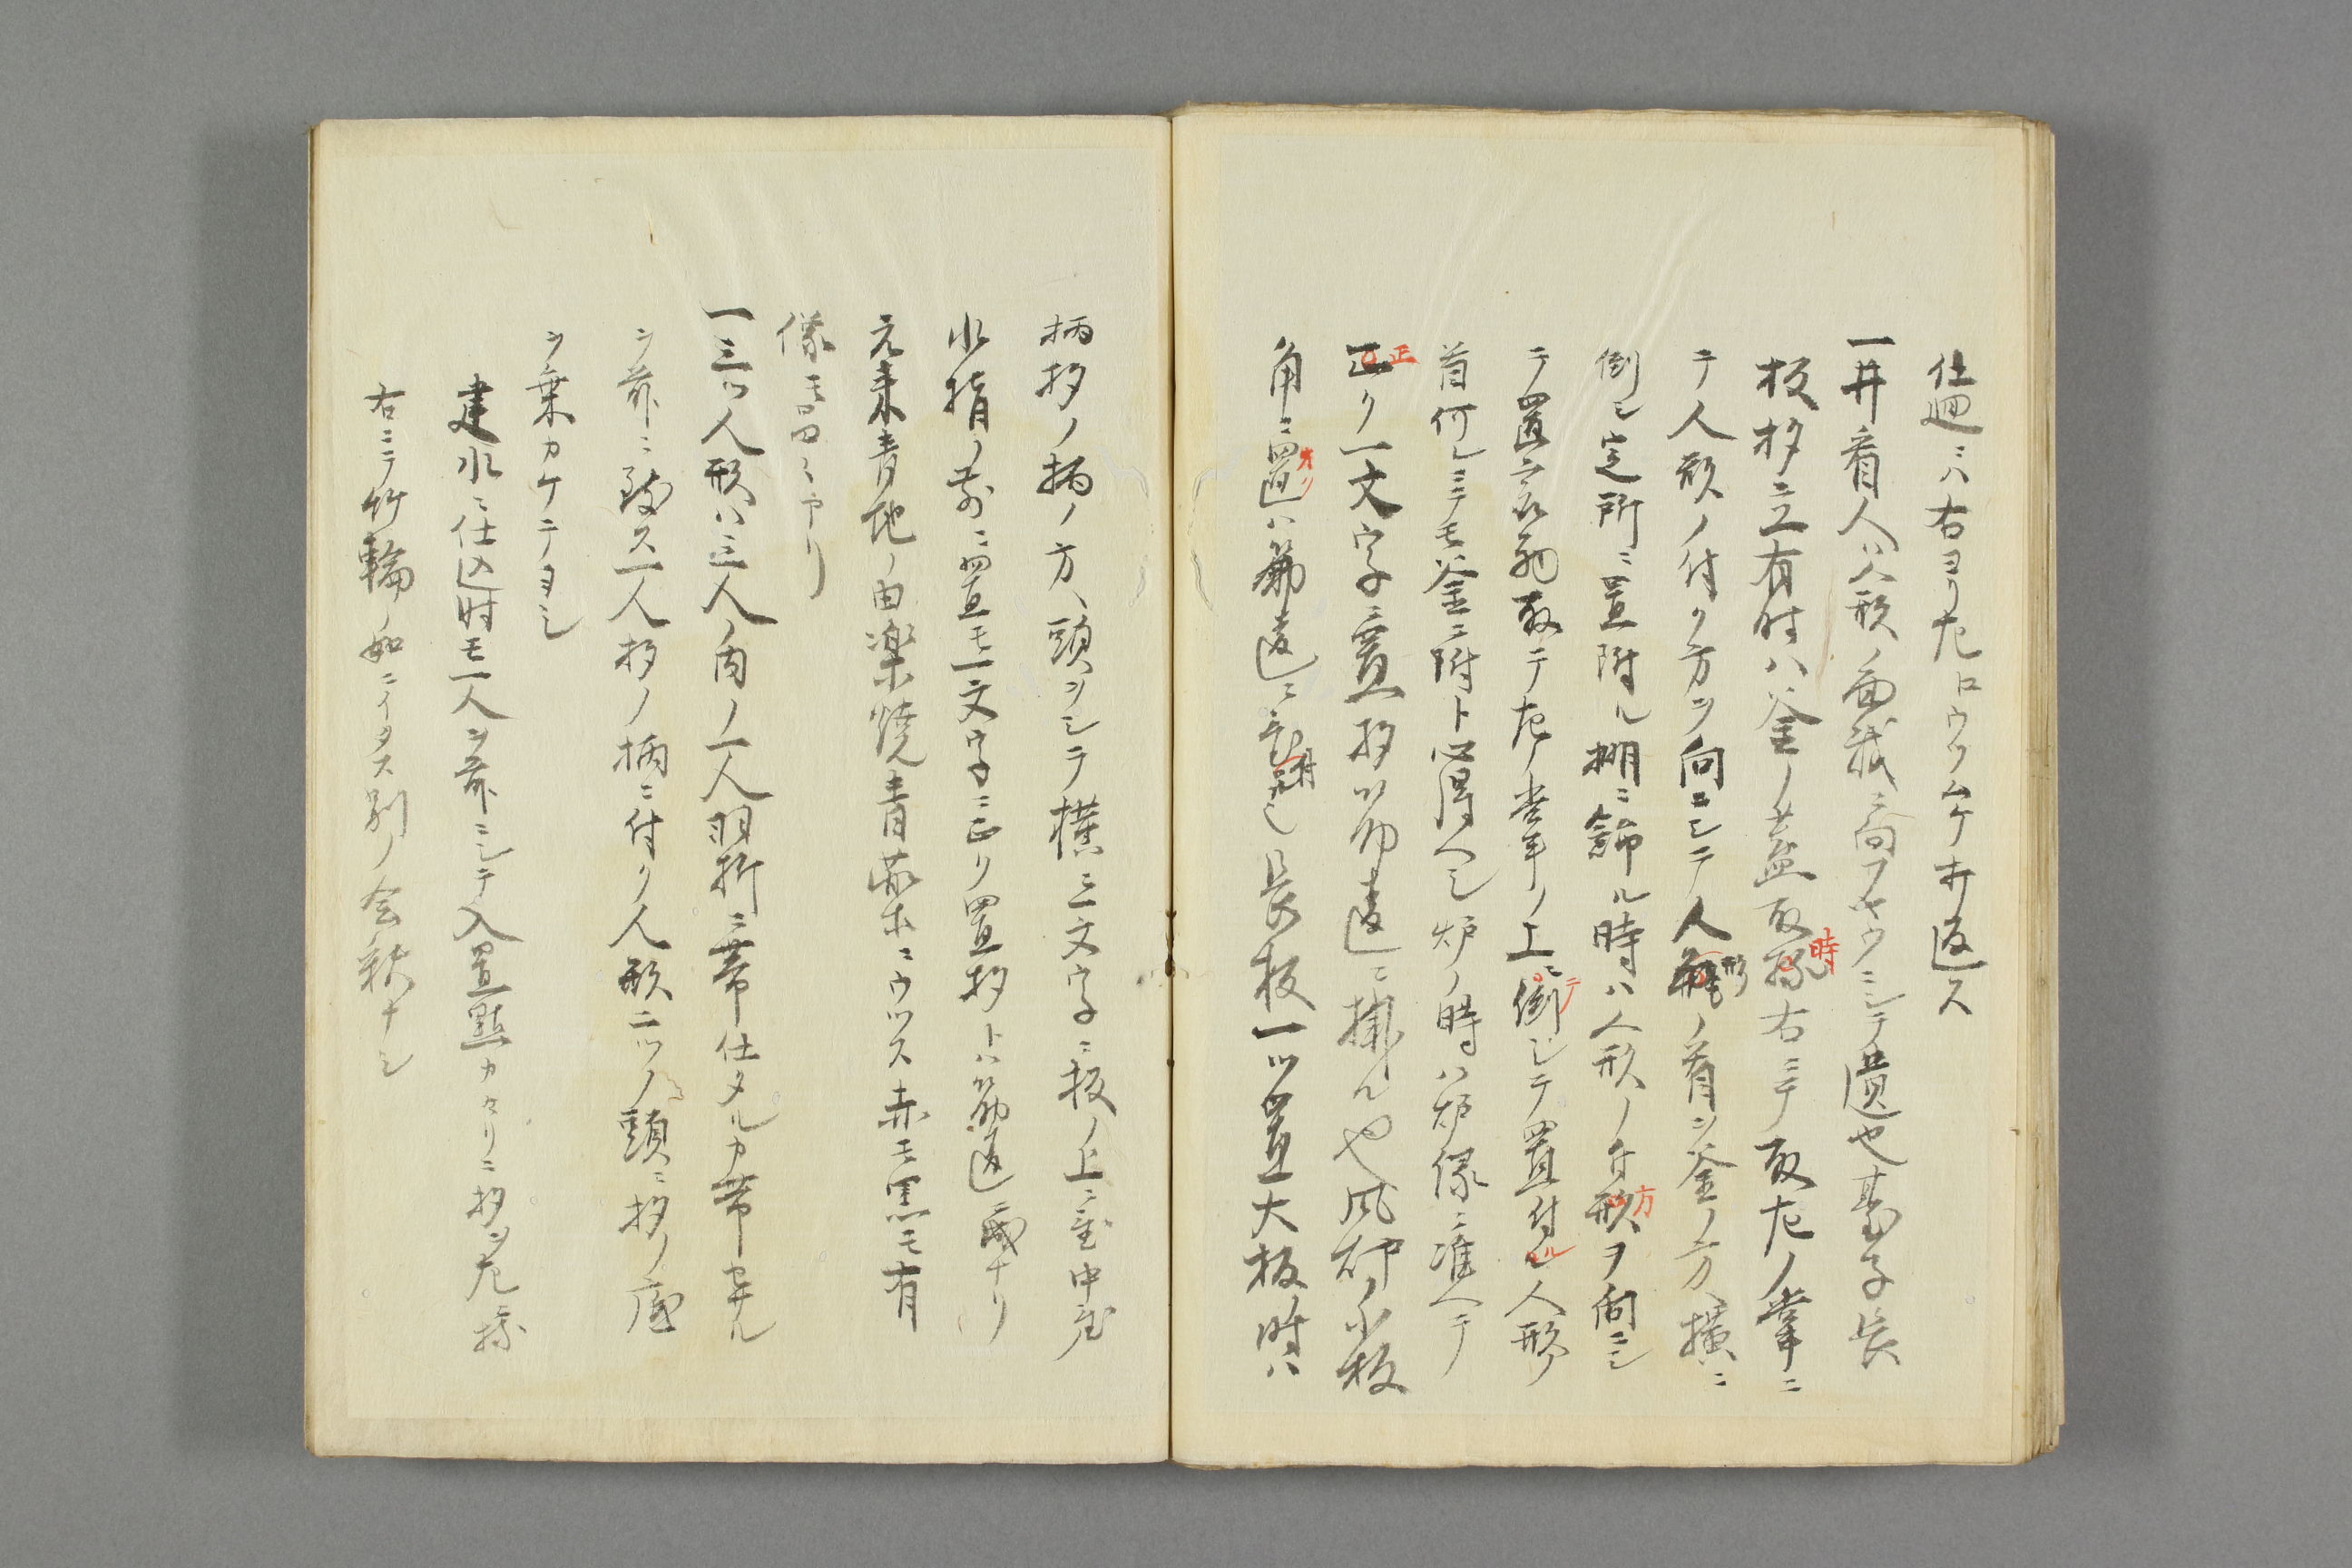 仕廻ニハ右ヨリ左ヒロウツムケ井返ス
一井看人ハ人形ノ面我ニ向フヤウニシテ遣也臺子長
板杓立有時ハ釜ノ蓋取時右ニテ取左ノ掌ニ
テ人形ノ付ク方ヲ向ニシテ人形ノ着ヲ釜ノ方ヘ横ニ
倒シ定所ニ置附ル棚ニ飾ル時ハ人形ノ付方ヲ向ニシ
テ置取テ左ノ掌ノ上ニテ倒シテ置付ル人形ノ
首何レニテモ釜ニ附ト心得ヘシ炉ノ時ハ炉縁ニ准ヘテ
正リ一文字ニ置杓ハ筋違ニ構ルや風炉ノ小板
角ニ置ハ筋違ニ置附也長板一ツ置大板ノ時ハ
柄杓ノ柄ノ方ヘ頭ヲシテ横一文字ニ板ノ上ニ置中置
水指ノ前ニ置モ一文字ニ正リ置杓トハ筋違ニ成ナリ
元来青地ノ由楽焼青薬ニウツス赤モ黒モ有
様モ品々アリ
一三ツ人形ハ三人ノ内ノ一人羽折ニ帯仕タルカ帯セサル
ヲ前ニ致ス一人杓ノ柄ニ付ク人形二ツノ頭ニ杓ノ底
ヲ乗カケテヨシ
建水ニ仕込時モ一人ヲ前ニシテ入置點カヽリニ杓ヲ左ニ扱
右ニテ竹輪ノ如ニイタス別ノ会釈ナシ